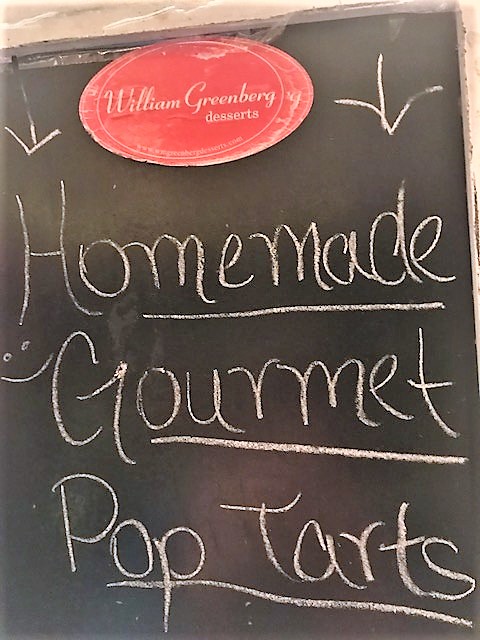 William Greenberg
desserts
www.wmgreenbergdesserts.com
Homemade
Gourmet
Pop Tarts